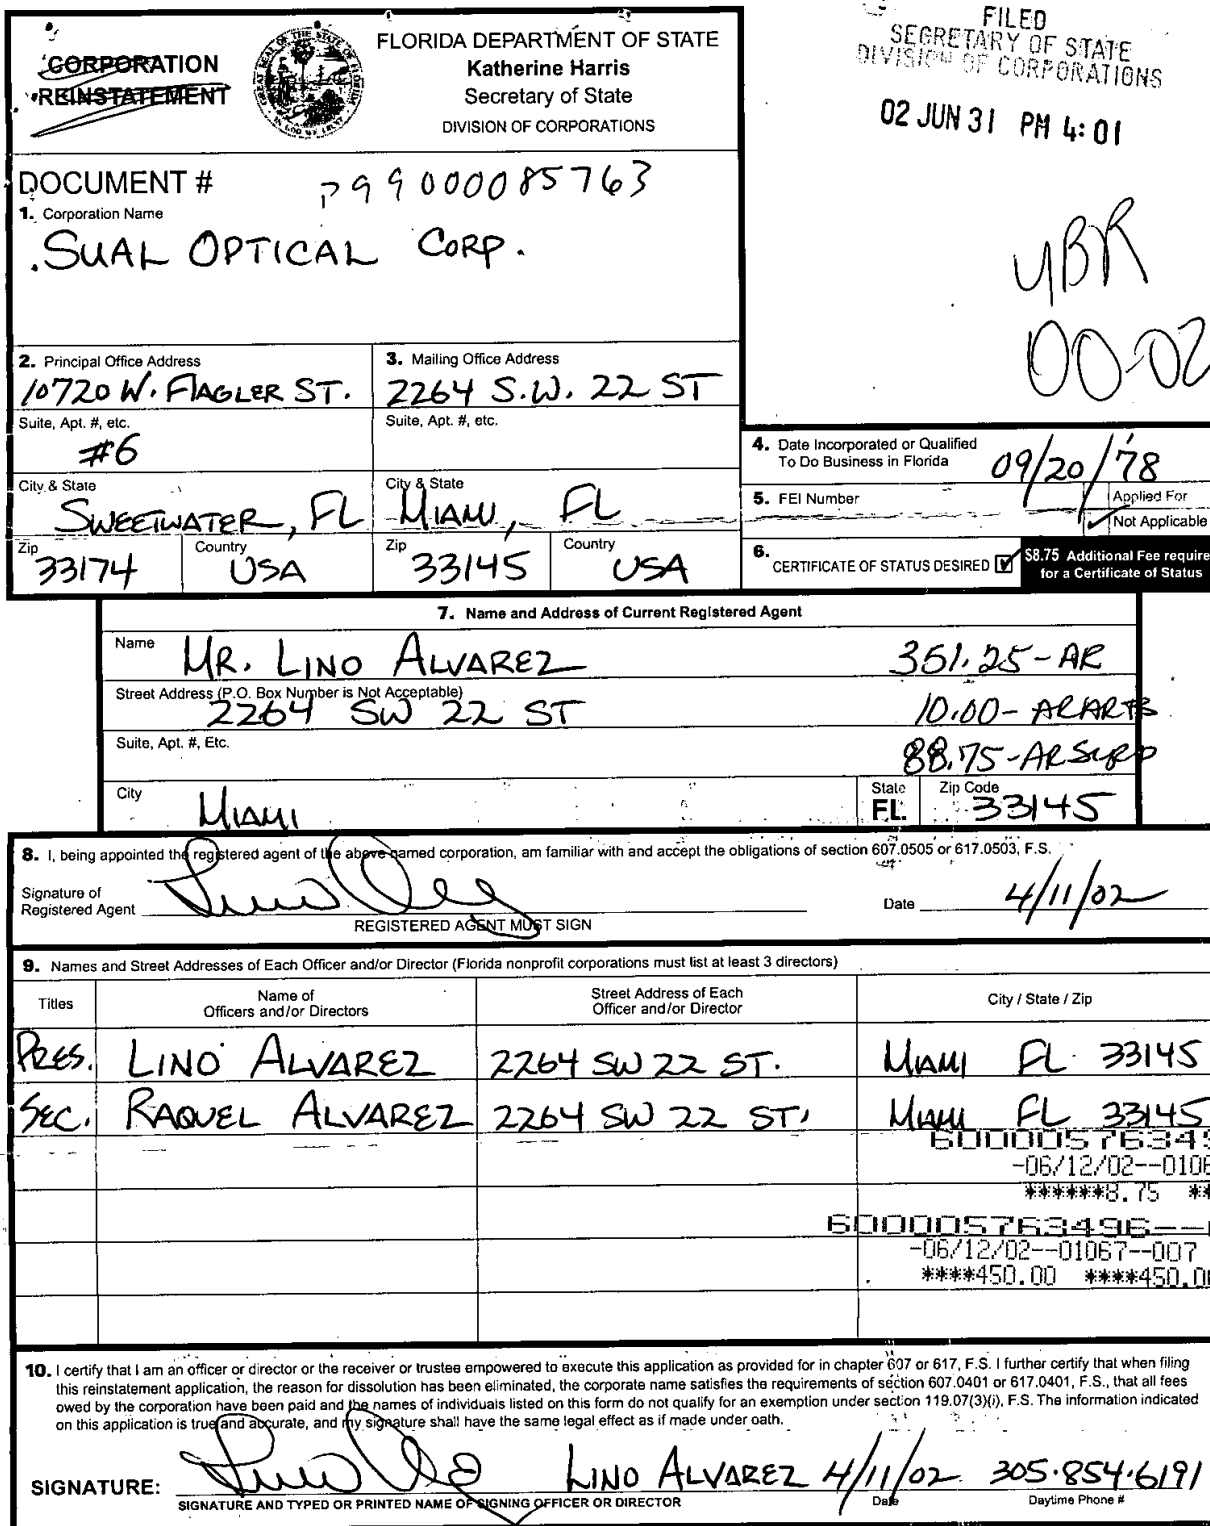 CORPORATION
REINSTATEMENT
FLORIDA DEPARTMENT OF STATE
Katherine Harris
Secretary of State
DIVISION OF CORPORATIONS
FILED
SECRETARY OF STATE
DIVISION OF CORPORATIONS
02 JUN 31 PM 4:01
DOCUMENT # P99000085763
1. Corporation Name
SUAL OPTICAL CORP.
UBR
00-02
2. Principal Office Address
10720 W. FLAGLER ST.
3. Mailing Office Address
2264 S.W. 22 ST
Suite, Apt. #, etc.
#6
Suite, Apt. #, etc.
City & State
SWEETWATER, FL
City & State
MIAMI, FL
Zip
33174
Country
USA
Zip
33145
Country
USA
4. Date Incorporated or Qualified
To Do Business in Florida
09/20/'78
5. FEI Number
Applied For
Not Applicable
6. CERTIFICATE OF STATUS DESIRED
$8.75 Additional Fee require
for a Certificate of Status
7. Name and Address of Current Registered Agent
Name
MR. LINO ALVAREZ
351.25-AR
Street Address (P.O. Box Number is Not Acceptable)
2264 SW 22 ST
10.00-ARARTS
Suite, Apt. #, Etc.
88.75-ARSUPP
City
MIAMI
State
FL
Zip Code
33145
8. I, being appointed the registered agent of the above named corporation, am familiar with and accept the obligations of section 607.0505 or 617.0503, F.S.
Signature of
Registered Agent
REGISTERED AGENT MUST SIGN
Date 4/11/02
9. Names and Street Addresses of Each Officer and/or Director (Florida nonprofit corporations must list at least 3 directors)
Titles
Name of
Officers and/or Directors
Street Address of Each
Officer and/or Director
City / State / Zip
PRES. LINO ALVAREZ 2264 SW 22 ST. MIAMI FL 33145
SEC. RAQUEL ALVAREZ 2264 SW 22 ST. MIAMI FL 33145
60000576349
-06/12/02--0106
******8.75 **
600005763496--
-06/12/02--01067--007
****450.00 ****450.00
10. I certify that I am an officer or director or the receiver or trustee empowered to execute this application as provided for in chapter 607 or 617, F.S. I further certify that when filing
this reinstatement application, the reason for dissolution has been eliminated, the corporate name satisfies the requirements of section 607.0401 or 617.0401, F.S., that all fees
owed by the corporation have been paid and the names of individuals listed on this form do not qualify for an exemption under section 119.07(3)(i), F.S. The information indicated
on this application is true and accurate, and my signature shall have the same legal effect as if made under oath.
SIGNATURE: LINO ALVAREZ 4/11/02 305.854.6191
SIGNATURE AND TYPED OR PRINTED NAME OF SIGNING OFFICER OR DIRECTOR
Date
Daytime Phone #